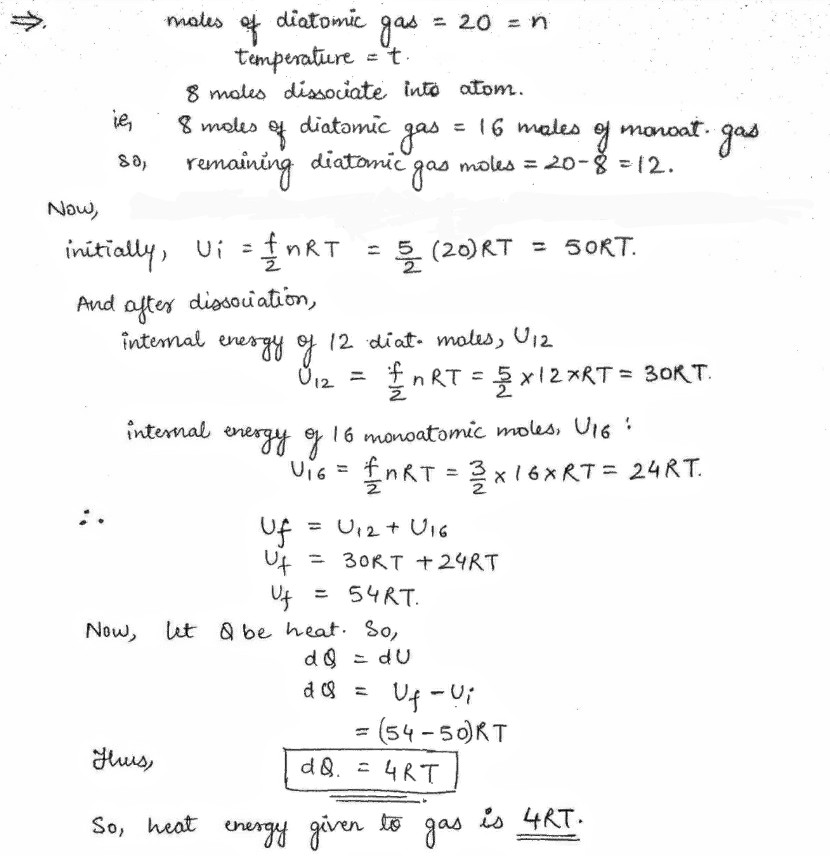 ⇒. moles of diatomic gas = 20 = n
temperature = t.
8 moles dissociate into atom.
ie, 8 moles of diatomic gas = 16 moles of monoat. gas
so, remaining diatomic gas moles = 20-8 = 12.
Now,
initially, Ui = f/2 nRT = 5/2 (20)RT = 50RT.
And after dissociation,
internal energy of 12 diat. moles, U12
U12 = f/2 nRT = 5/2 x 12 x RT = 30RT.
internal energy of 16 monoatomic moles, U16 :
U16 = f/2 nRT = 3/2 x 16 x RT = 24RT.
∴ Uf = U12 + U16
Uf = 30RT + 24RT
Uf = 54RT.
Now, let Q be heat. So,
dQ = dU
dQ = Uf - Ui
= (54-50)RT
Thus, dQ. = 4RT
So, heat energy given to gas is 4RT.